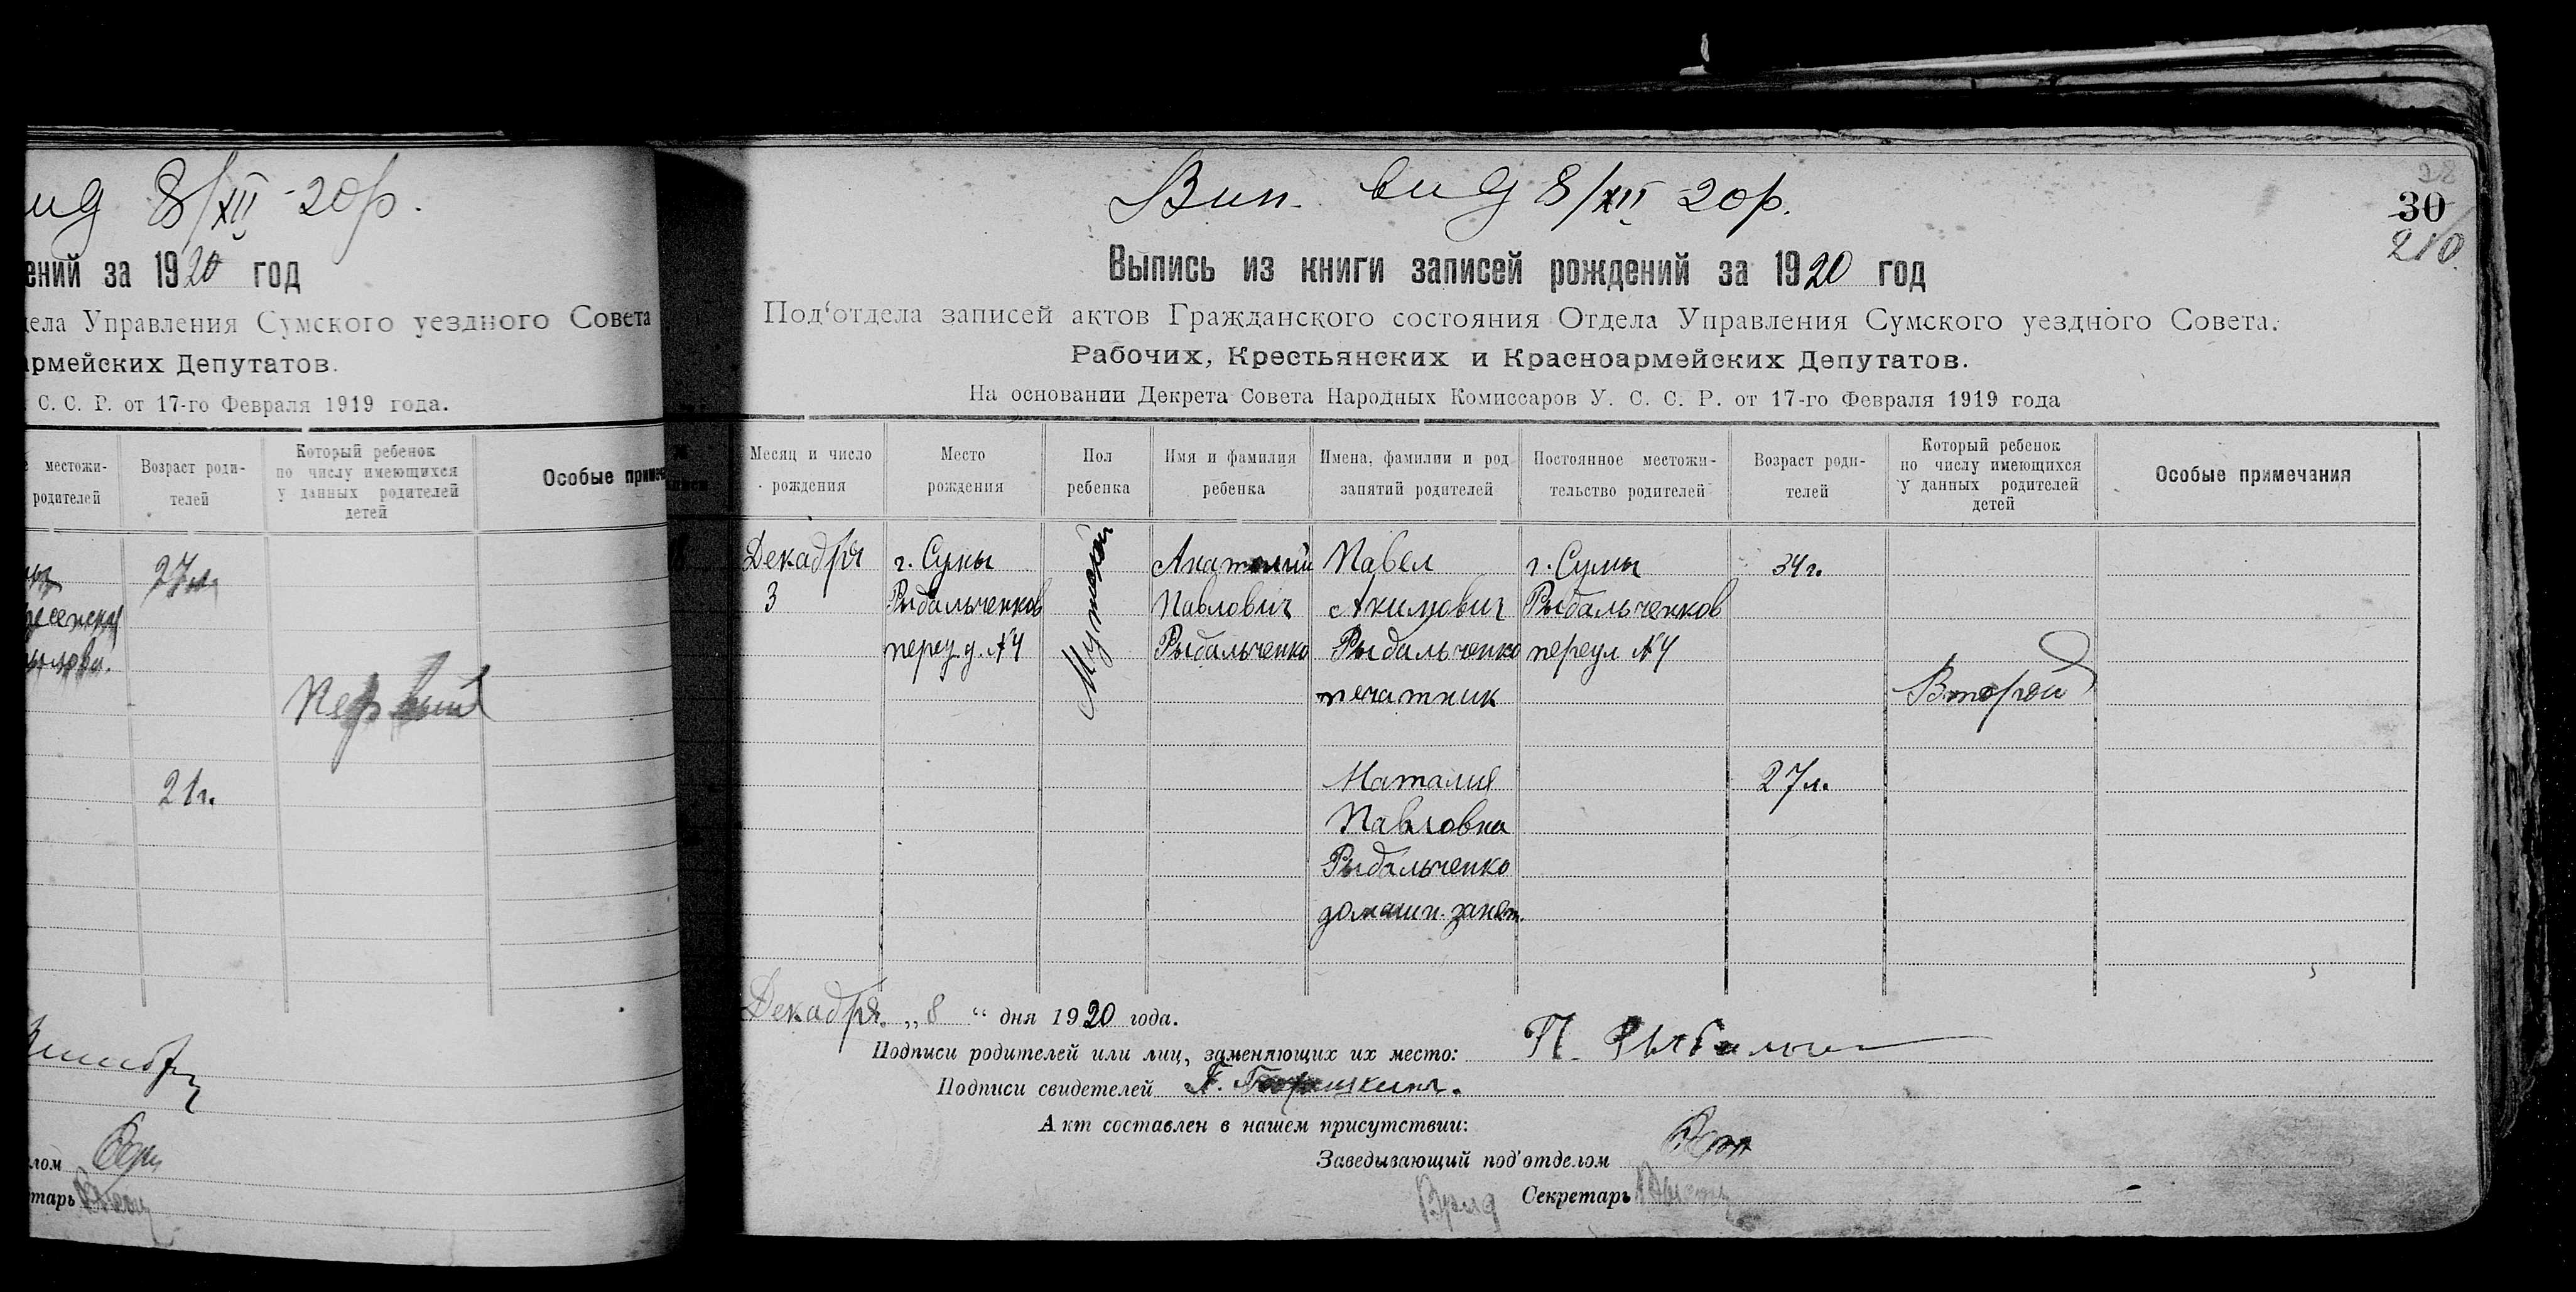 8/XII -20р.
ений за 1920 год
дела Управления Сумского уездного Совета
армейских Депутатов.
С. С. Р. от 17-го Февраля 1919 года.
местожи-
родителей
Возраст роди-
телей
Который ребенок
по числу имеющихся
у данных родителей
детей
Особые
27 л.
Первый
21 г.
лом
тарь
Вип. вид 8/XII -20р.
28
30
210
Выпись из книги записей рождений за 1920 год
Под'отдела записей актов Гражданского состояния Отдела Управления Сумского уездного Совета.
Рабочих, Крестьянских и Красноармейских Депутатов.
На основании Декрета Совета Народных Комиссаров У. С. С. Р. от 17-го Февраля 1919 года
Месяц и число
рождения
Место
рождения
Пол
ребенка
Имя и фамилия
ребенка
Имена, фамилии и род
занятий родителей
Постоянное местожи-
тельство родителей
Возраст роди-
телей
Который ребенок
по числу имеющихся
у данных родителей
детей
Особые примечания
Декабря
3
г. Сумы
Рыбальченков
переу. д. №4
Мужской
Анатолий
Павлович
Рыбальченко
Павел
Акимович
Рыбальченко
печатник
Наталия
Павловна
Рыбальченко
домашн. занят.
г. Сумы
Рыбальченков
переул №4
34 г.
27 л.
Второй
Декабря „ 8 “ дня 1920 года.
Подписи родителей или лиц, заменяющих их место: П.
Подписи свидетелей
Акт составлен в нашем присутствии:
Заведывающий под'отделом
Врид Секретарь